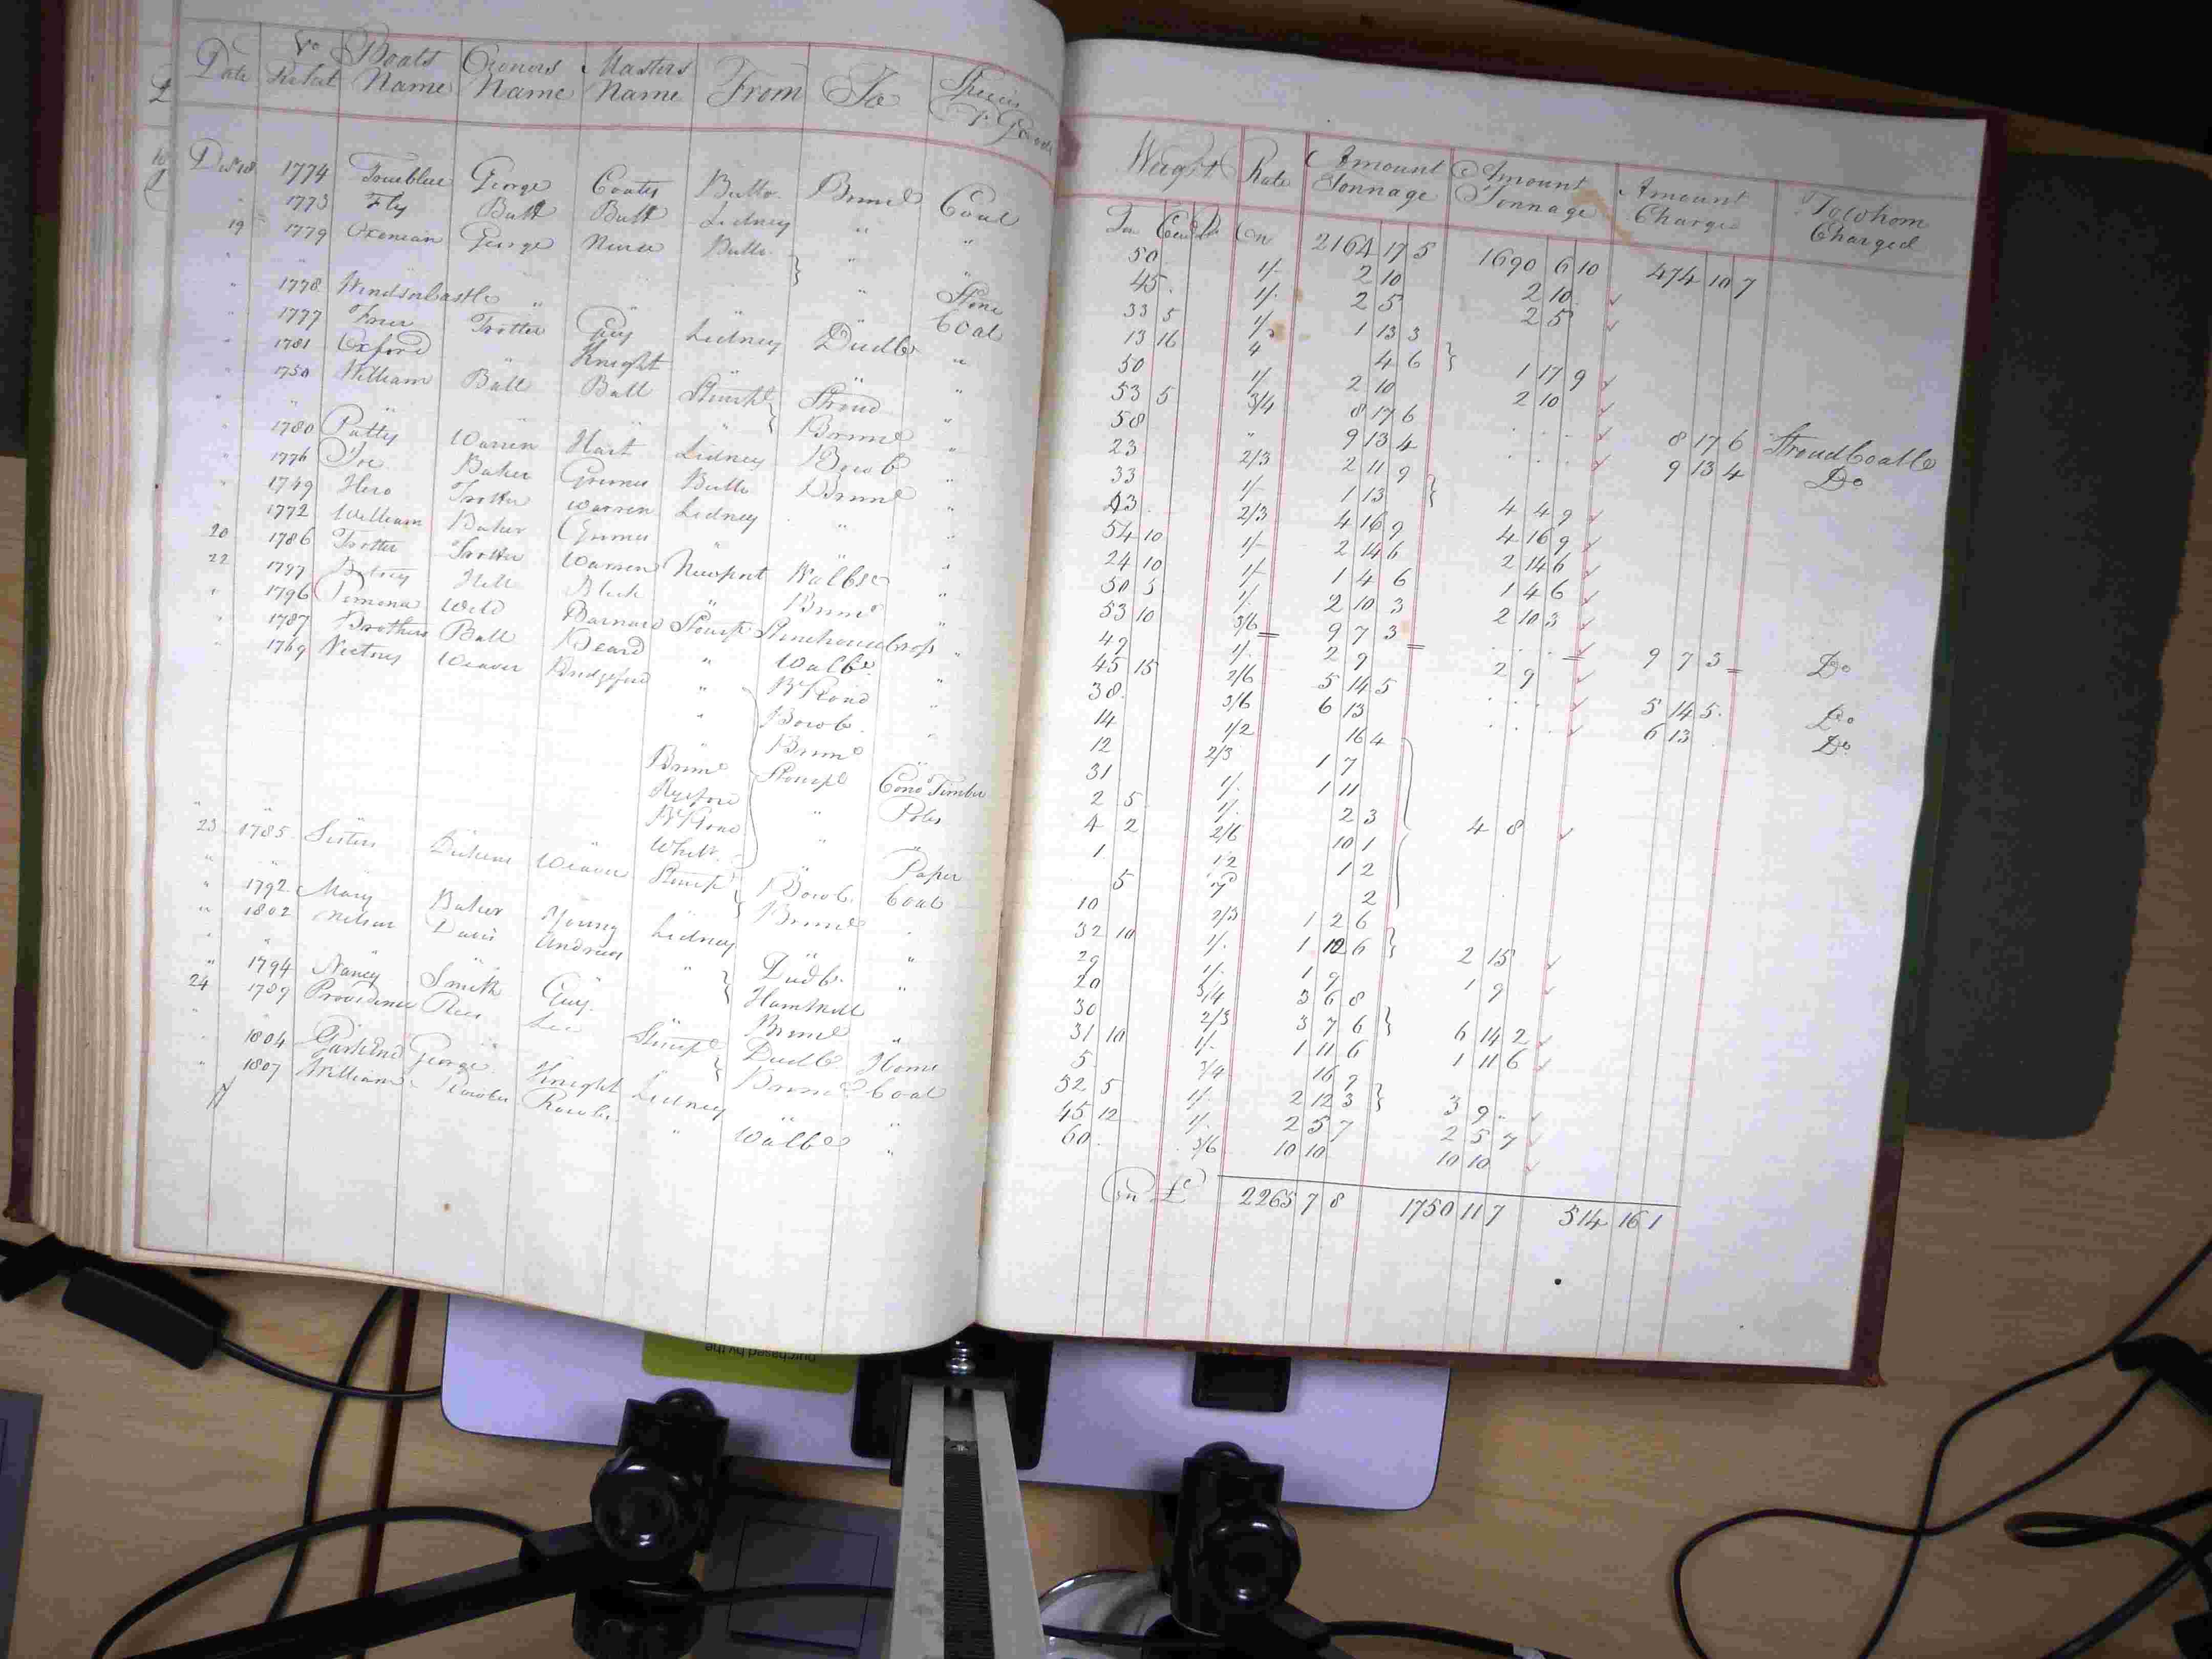 Date No Ticket Boats Name Owners Name Masters Name From To Species of Goods
Decr 18 1774 Trueblue George Coates Bullo Brimd Coal
" 1773 Fly Butt Butt Lidney " "
19 1779 Oxonian George Nurse Bullo "
" " " " " " " Stone
" 1778 Windsor Castle " Guy Lidney Dudb Coal
" 1777 Frier Trotter Knight " " "
" 1781 Oxford " Ball Stourpt Stroud "
" 1750 William Ball " " Brimd "
" " " " Hart Lidney Bowb "
" 1780 Patty Warren Grimes Bullo Brimd "
" 1776 Joe Baker Warren Lidney " "
" 1749 Hero Trotter Grimes " " "
" 1772 William Baker Warren Newport Wallbe "
20 1786 Trotter Trotter " Brimd "
22 1797 Betsey Hill Barnard Stourpt Stonehouse Cross "
" 1796 Pomona Weld Beard " Wallbe "
" 1787 Brothers Ball Bridgeford
" 1769 Victory Weaver
Bowb
Brimd
Brimd Stourpt Timber
Ryeford " Poles
Whitr. " Paper
23 1785 Sisters Dickens Weaver Stourpt Bowb Coal
" " " " Brimd
" 1792 Mary Baker Young Lidney " "
" 1802 Nelson Davis Andrews " Dudb "
" " " " Ham Mill
" 1794 Nancy Smith Guy " Brimd "
24 1789 Providence Rees Lee Stourpt Dudb Stone
" " " " Brimd Coal
" 1804 Gaskend George Knight Lidney " "
" 1807 William Rowles Rowles " Wallbe "
Weight Rate Amount Tonnage Amount Tonnage Amount Charged To Whom Charged
Ton Cwt On 2164 17 5 1690 6 10 474 10 7
50 1/- 2 10 2 10
45 1/- 2 5 2 5
33 5 1/- 1 13 3
13 16 4 4 6 1 17 9
50 1/- 2 10 2 10
53 5 3/4 8 17 6 8 17 6 Stroud Coal Co
58 " 9 13 4 9 13 4 Do
23 2/3 2 11 9
33 1/- 1 13 4 4 9
43 2/3 4 16 9 4 16 9
54 10 1/- 2 14 6 2 14 6
24 10 1/- 1 4 6 1 4 6
50 5 1/- 2 10 3 2 10 3
53 10 3/6 9 7 3 9 7 3 Do
49 1/- 2 9 2 9
45 15 2/6 5 14 5 5 14 5 Do
38 3/6 6 13 6 13 Do
14 1/2 16 4
12 2/3 1 7
31 1/- 1 11
2 5 1/- 2 3 4 8
4 2 2/6 10 1
1 1/2 1 2
5 7d 2
10 2/3 1 2 6
32 10 1/- 1 12 6 2 15
29 1/- 1 9 1 9
20 3/4 3 6 8
30 2/3 3 7 6 6 14 2
31 10 1/- 1 11 6 1 11 6
5 3/4 16 9
52 5 1/- 2 12 3 3 9
45 12 1/- 2 5 7 2 5 7
60 3/6 10 10 10 10
On £ 2265 7 8 1750 11 7 514 16 1
purchased by the